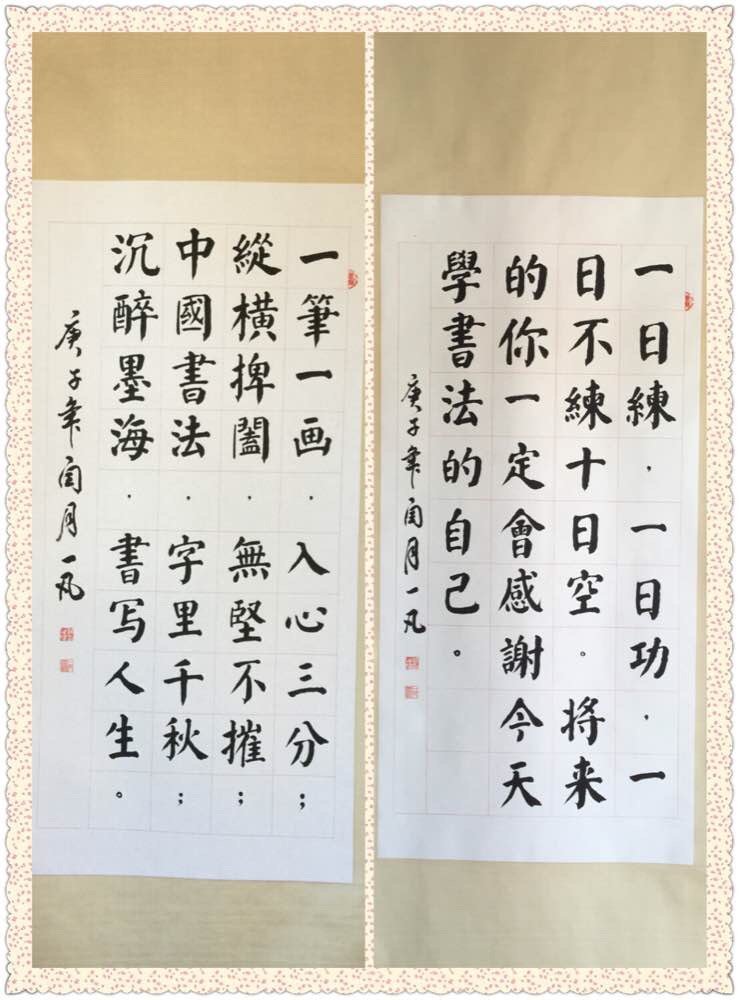 一筆一画，入心三分；
縱橫捭闔，無堅不摧；
中國書法，字里千秋；
沉醉墨海，書写人生。
庚子年闰月一凡
一日練，一日功，一
日不練十日空。将来
的你一定會感謝今天
學書法的自己。
庚子年闰月一凡